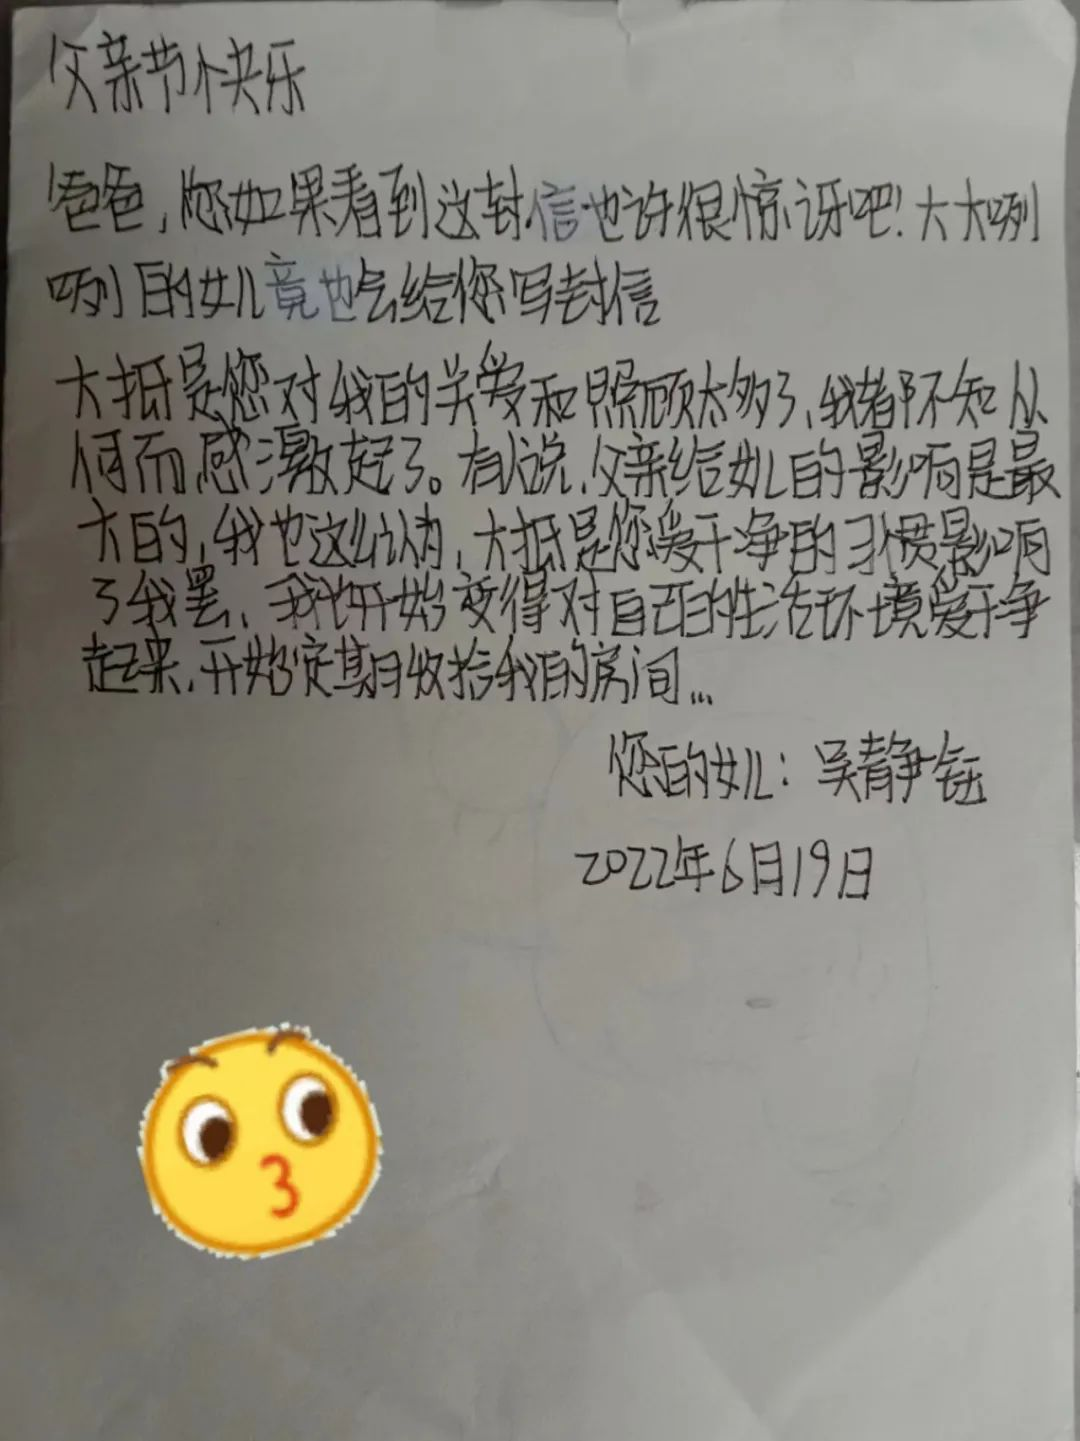 父亲节快乐
爸爸，您如果看到这封信也许很惊讶吧！大大咧
咧的女儿竟也会给您写封信
大抵是您对我的关爱和照顾太多了，我都不知从
何而感激起了。有人说，父亲给女儿的影响是最
大的，我也这么认为，大抵是您爱干净的习惯影响
了我罢，我也开始变得对自己的生活环境爱干净
起来，开始定期收拾我的房间...
您的女儿：吴静钰
2022年6月19日